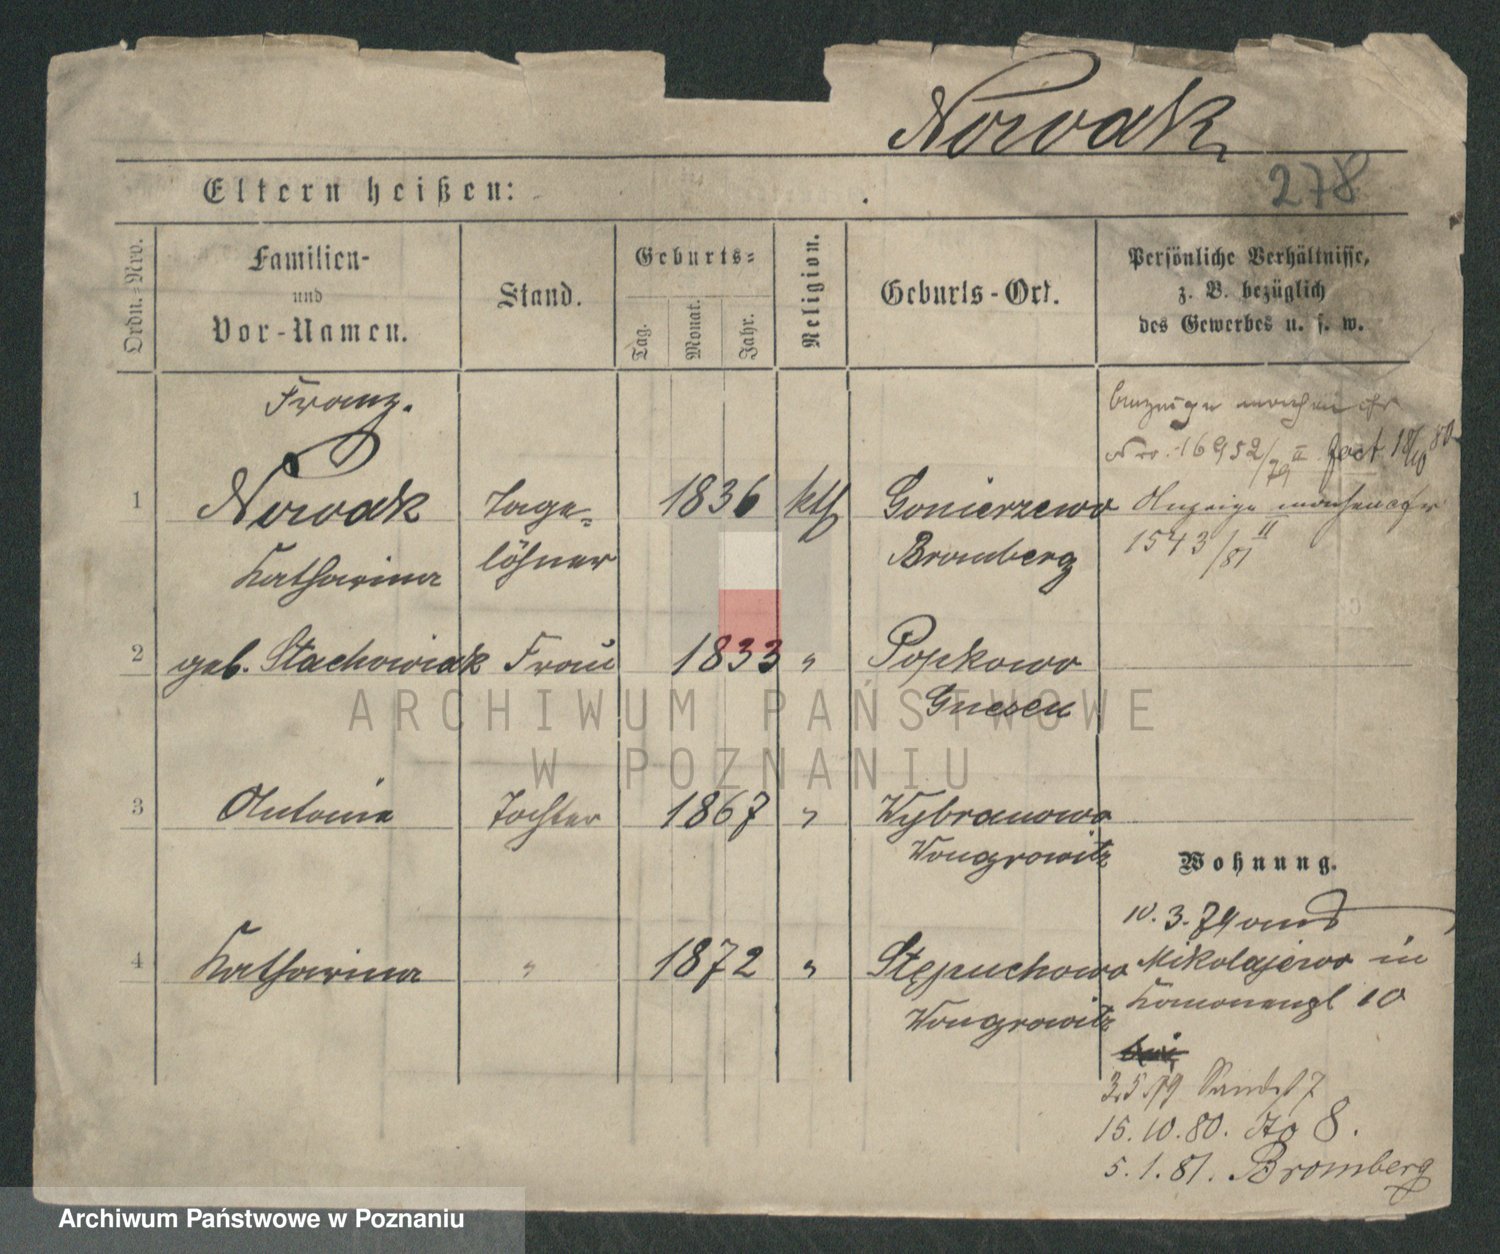 Nowak
278
Eltern heißen:
Ordn. Nro.
Familien-
und
Vor-Namen.
Stand.
Geburts-
Tag.
Monat.
Jahr.
Religion.
Geburts-Ort.
Persönliche Verhältnisse,
z. B. bezüglich
des Gewerbes u. s. w.
Franz.
Nro. 16952/79 II 18/10 80
1 Nowak Tage- 1836 kth Gonierzewo Anzeige
löhner Bromberg 1543/81 II
Katharina
2 geb. Stachowiak Frau 1833 " Popkowo
Gnesen
ARCHIWUM PAŃSTWOWE
W POZNANIU
3 Antonie Tochter 1867 " Wybranowo
Wongrowitz
Wohnung.
10. 3. 79
4 Katharina " 1872 " Stępuchowo Mikolajewo in
Wongrowitz 10
3.5.79 7
15.10.80. 8.
5.1.81. Bromberg
Archiwum Państwowe w Poznaniu